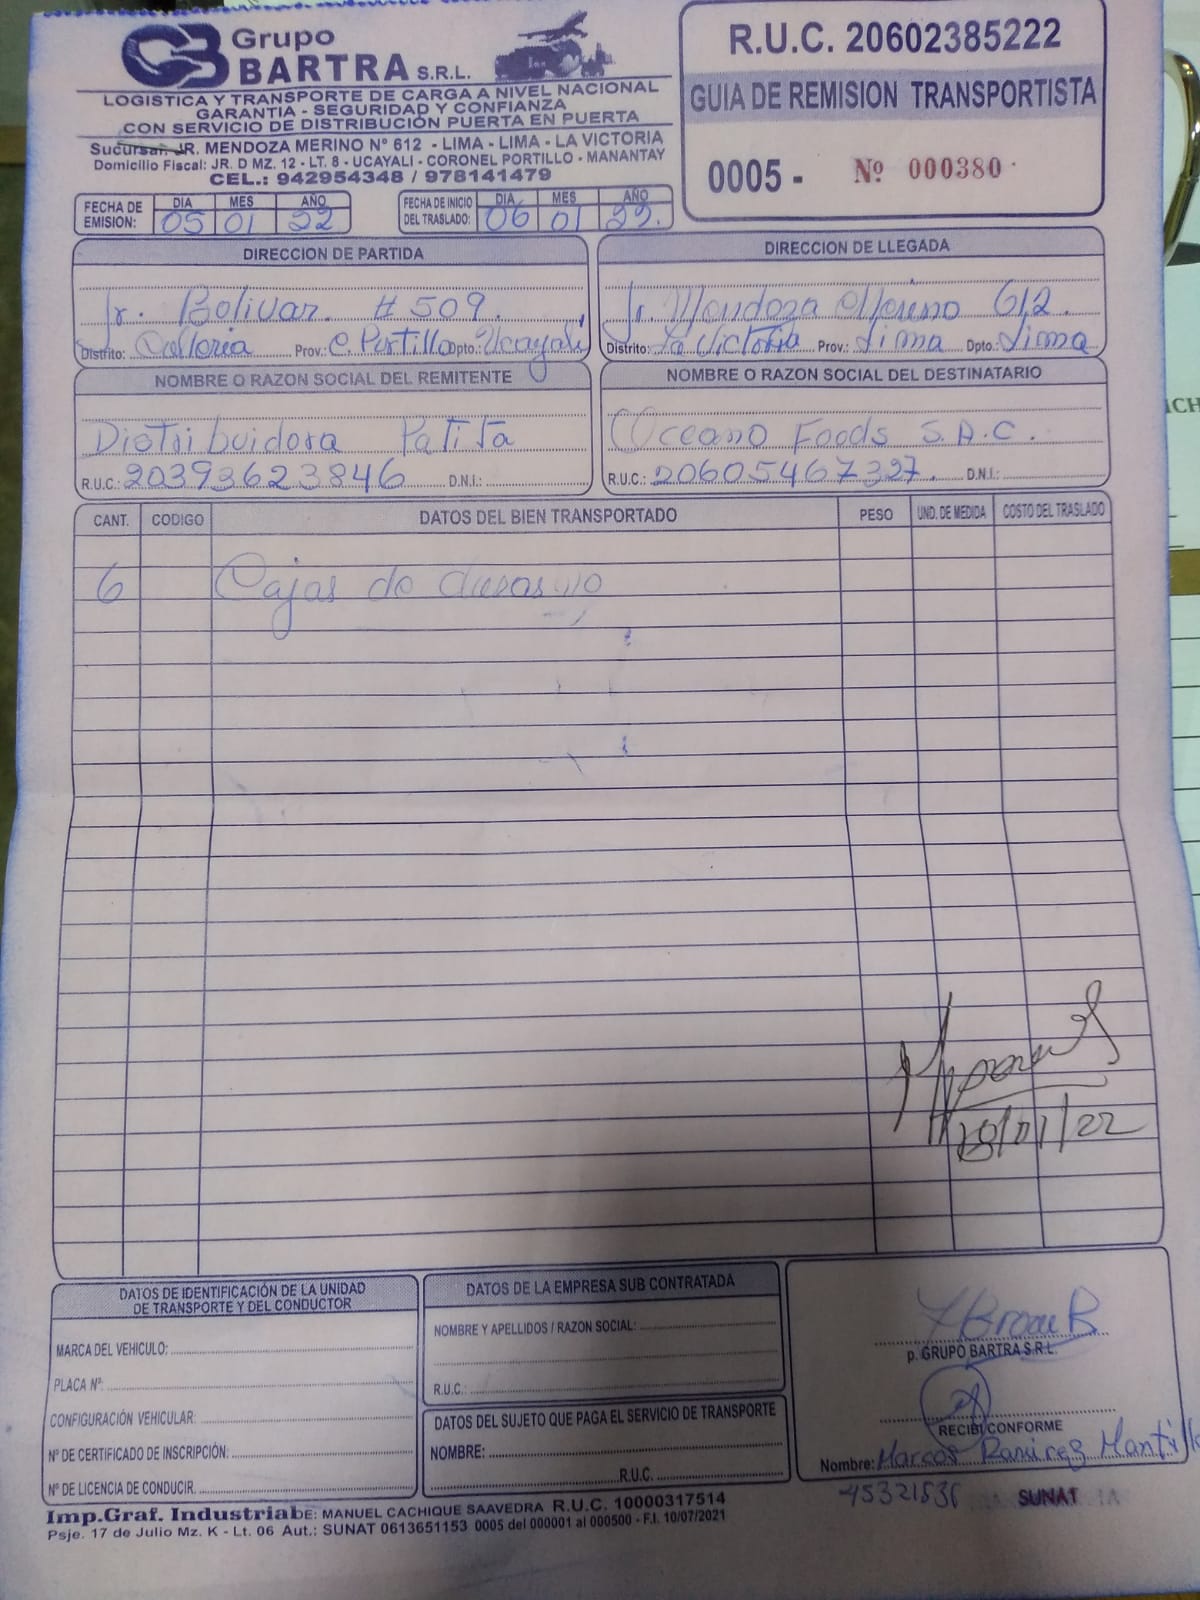 Grupo
BARTRA S.R.L.
LOGISTICA Y TRANSPORTE DE CARGA A NIVEL NACIONAL
GARANTIA - SEGURIDAD Y CONFIANZA
CON SERVICIO DE DISTRIBUCIÓN PUERTA EN PUERTA
Sucursal: JR. MENDOZA MERINO Nº 612 - LIMA - LIMA - LA VICTORIA
Domicilio Fiscal: JR. D MZ. 12 - LT. 8 - UCAYALI - CORONEL PORTILLO - MANANTAY
CEL.: 942954348 / 978141479
R.U.C. 20602385222
GUIA DE REMISION TRANSPORTISTA
0005 - Nº 000380
FECHA DE EMISION: DIA 05 MES 01 AÑO 22
FECHA DE INICIO DEL TRASLADO: DIA 06 MES 01 AÑO 22.
DIRECCION DE PARTIDA
Jr. Bolivar # 509.
Distrito: Calleria Prov.: C. Portillo Dpto.: Ucayali
DIRECCION DE LLEGADA
Jr. Mendoza Merino 612.
Distrito: La Victoria Prov.: Lima Dpto.: Lima
NOMBRE O RAZON SOCIAL DEL REMITENTE
Distribuidora Patita
R.U.C.: 20393623846 D.N.I.:
NOMBRE O RAZON SOCIAL DEL DESTINATARIO
Oceano Foods S.A.C.
R.U.C.: 20605467327. D.N.I.:
CANT. CODIGO DATOS DEL BIEN TRANSPORTADO PESO UND. DE MEDIDA COSTO DEL TRASLADO
6 Cajas de
/01/22
DATOS DE IDENTIFICACIÓN DE LA UNIDAD
DE TRANSPORTE Y DEL CONDUCTOR
MARCA DEL VEHICULO:
PLACA Nº:
CONFIGURACIÓN VEHICULAR:
Nº DE CERTIFICADO DE INSCRIPCIÓN:
Nº DE LICENCIA DE CONDUCIR.
DATOS DE LA EMPRESA SUB CONTRATADA
NOMBRE Y APELLIDOS / RAZON SOCIAL:
R.U.C.:
DATOS DEL SUJETO QUE PAGA EL SERVICIO DE TRANSPORTE
NOMBRE:
R.U.C.
p. GRUPO BARTRA S.R.L.
RECIBI CONFORME
Nombre: Marcos Ramirez Mantilla
SUNAT
Imp.Graf. Industrial DE: MANUEL CACHIQUE SAAVEDRA R.U.C. 10000317514
Psje. 17 de Julio Mz. K - Lt. 06 Aut.: SUNAT 0613651153 0005 del 000001 al 000500 - F.I. 10/07/2021